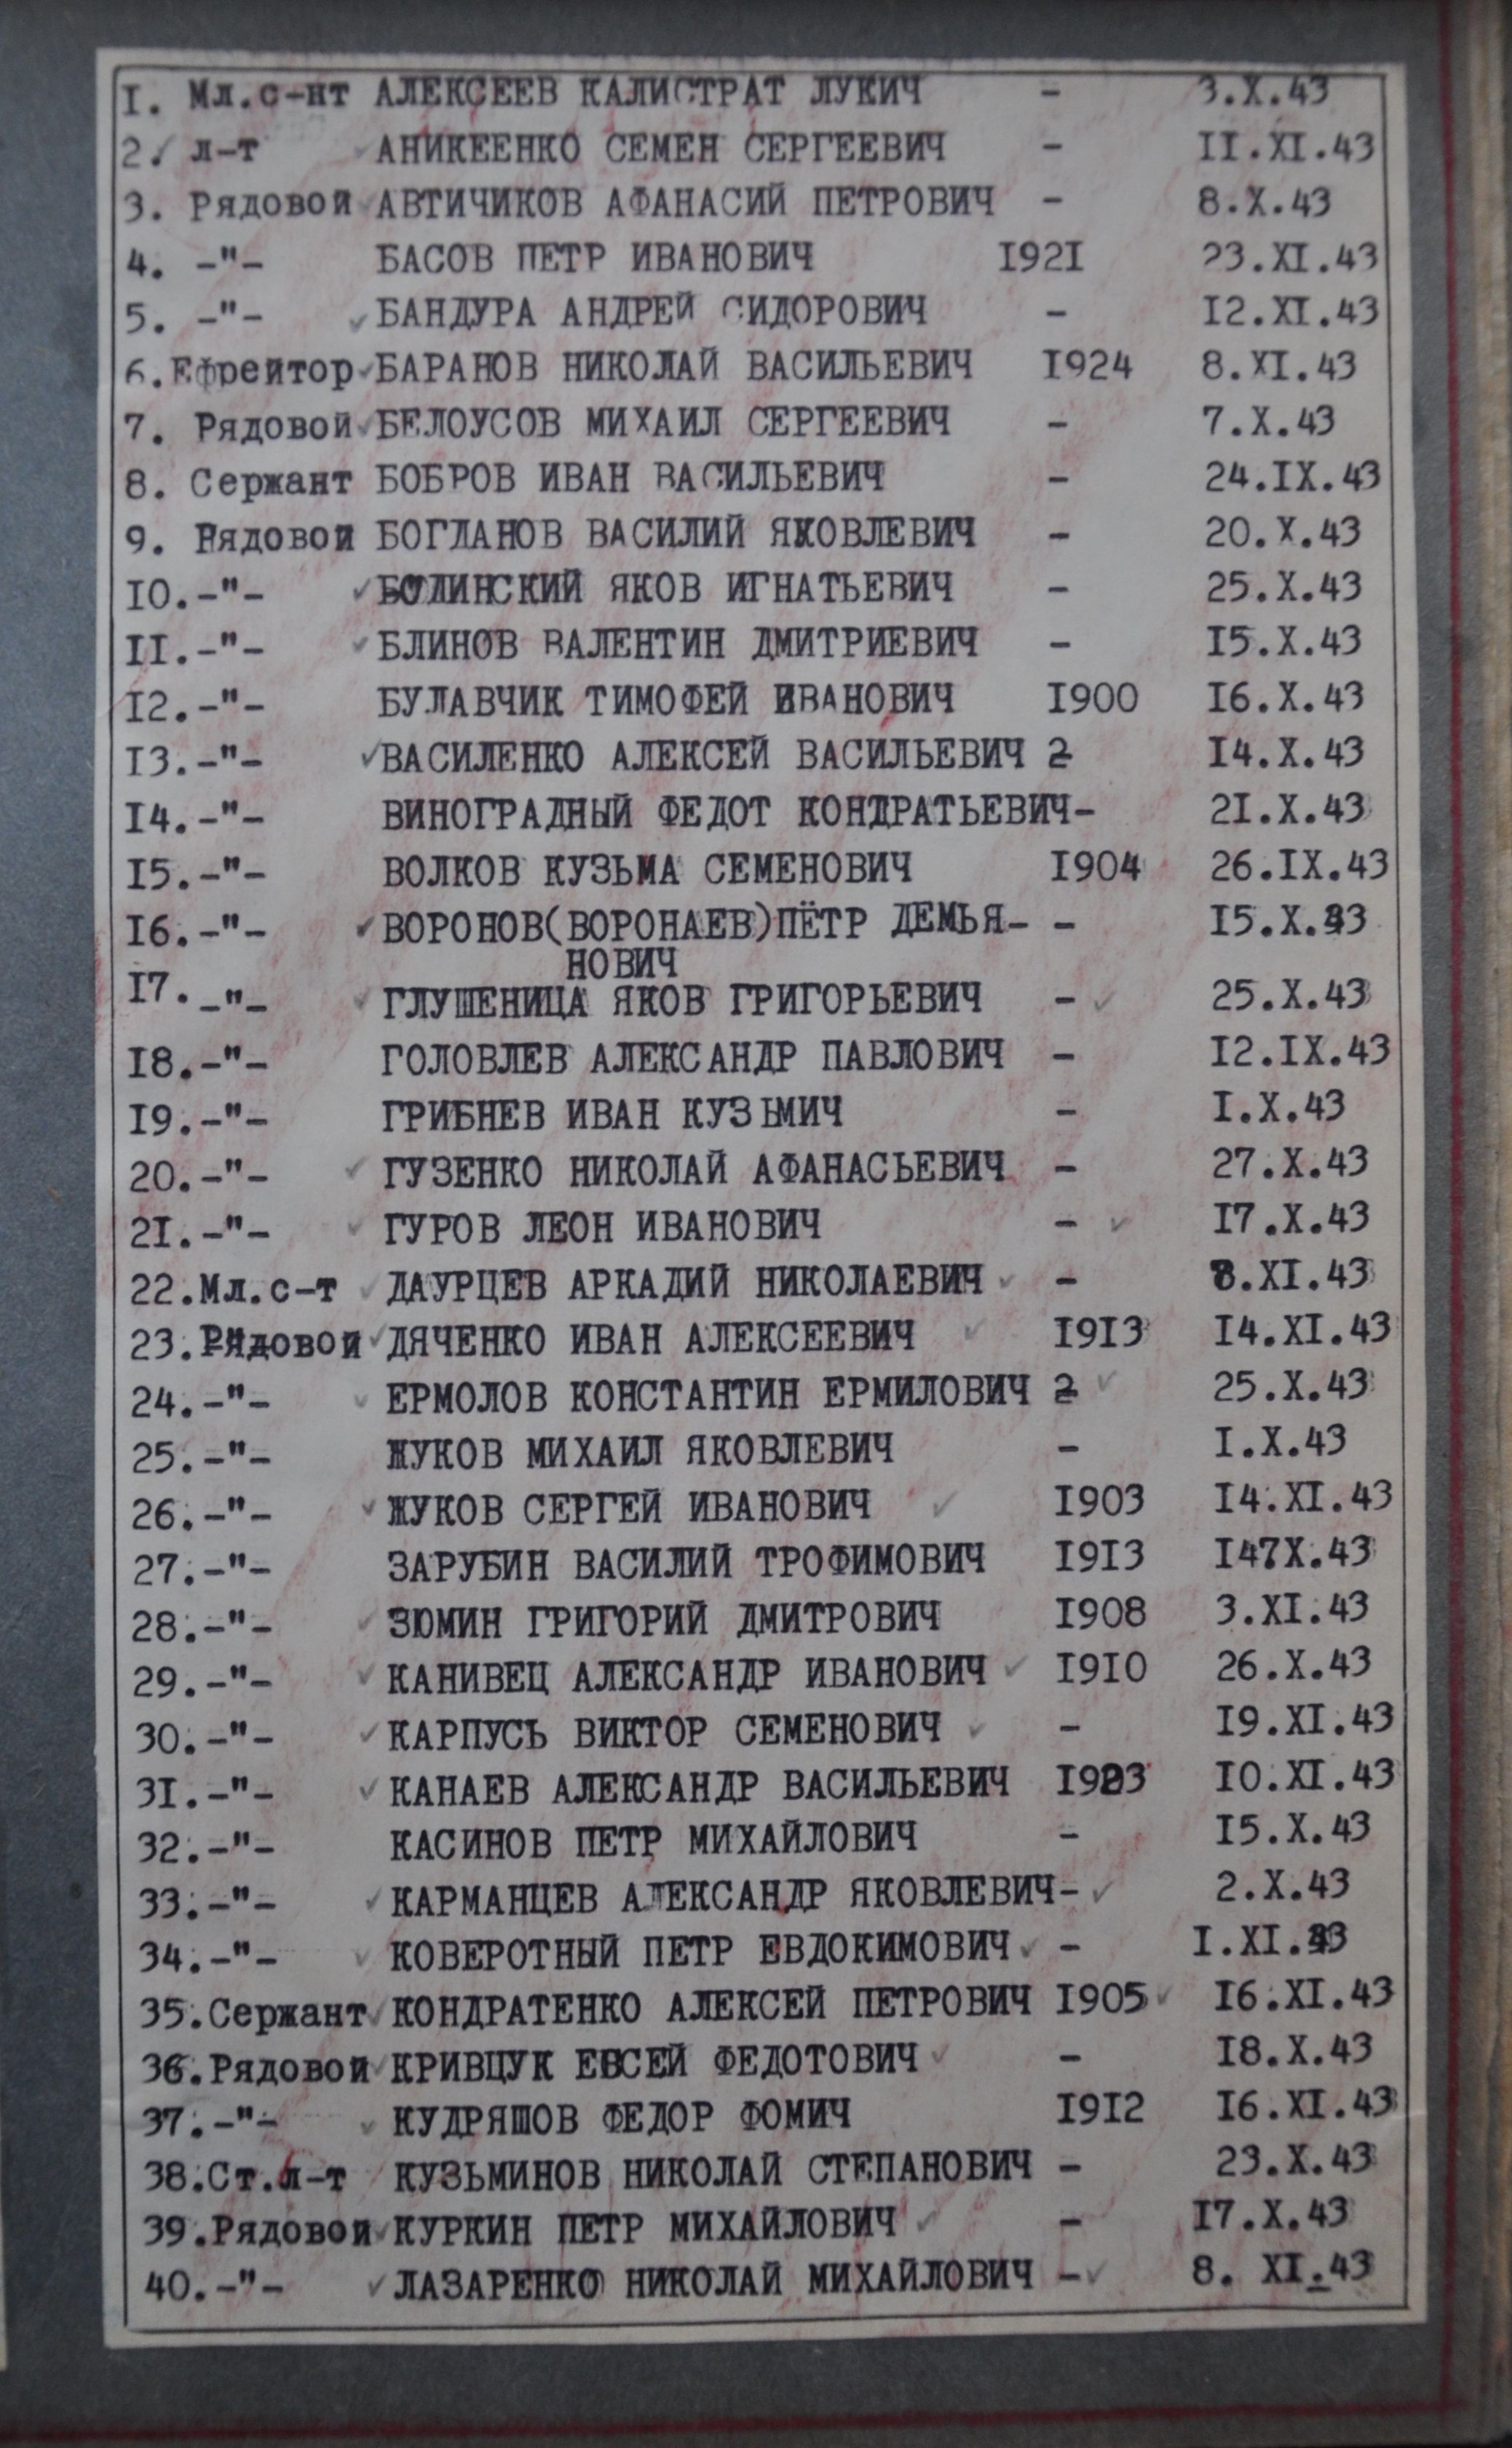 I. Мл.с-нт АЛЕКСЕЕВ КАЛИСТРАТ ЛУКИЧ - 3.X.43
2. л-т АНИКЕЕНКО СЕМЕН СЕРГЕЕВИЧ - II.XI.43
3. Рядовой АВТИЧИКОВ АФАНАСИЙ ПЕТРОВИЧ - 8.X.43
4. -"- БАСОВ ПЕТР ИВАНОВИЧ I92I 23.XI.43
5. -"- БАНДУРА АНДРЕЙ СИДОРОВИЧ - I2.XI.43
6.Ефрейтор БАРАНОВ НИКОЛАЙ ВАСИЛЬЕВИЧ I924 8.XI.43
7. Рядовой БЕЛОУСОВ МИХАИЛ СЕРГЕЕВИЧ - 7.X.43
8. Сержант БОБРОВ ИВАН ВАСИЛЬЕВИЧ - 24.IX.43
9. Рядовой БОГДАНОВ ВАСИЛИЙ ЯКОВЛЕВИЧ - 20.X.43
I0.-"- ЯКОВ ИГНАТЬЕВИЧ - 25.X.43
II.-"- БЛИНОВ ВАЛЕНТИН ДМИТРИЕВИЧ - I5.X.43
I2.-"- БУЛАВЧИК ТИМОФЕЙ ИВАНОВИЧ I900 I6.X.43
I3.-"- ВАСИЛЕНКО АЛЕКСЕЙ ВАСИЛЬЕВИЧ - I4.X.43
I4.-"- ВИНОГРАДНЫЙ ФЕДОТ КОНДРАТЬЕВИЧ- 2I.X.43
I5.-"- ВОЛКОВ КУЗЬМА СЕМЕНОВИЧ I904 26.IX.43
I6.-"- ВОРОНОВ(ВОРОНАЕВ)ПЁТР ДЕМЬЯ- - I5.X.43
НОВИЧ
I7.-"- ГЛУШЕНИЦА ЯКОВ ГРИГОРЬЕВИЧ - 25.X.43
I8.-"- ГОЛОВЛЕВ АЛЕКСАНДР ПАВЛОВИЧ - I2.IX.43
I9.-"- ГРИБНЕВ ИВАН КУЗЬМИЧ - I.X.43
20.-"- ГУЗЕНКО НИКОЛАЙ АФАНАСЬЕВИЧ - 27.X.43
2I.-"- ГУРОВ ЛЕОН ИВАНОВИЧ - I7.X.43
22.Мл.с-т ДАУРЦЕВ АРКАДИЙ НИКОЛАЕВИЧ - 8.XI.43
23.Рядовой ДЯЧЕНКО ИВАН АЛЕКСЕЕВИЧ I9I3 I4.XI.43
24.-"- ЕРМОЛОВ КОНСТАНТИН ЕРМИЛОВИЧ - 25.X.43
25.-"- ЖУКОВ МИХАИЛ ЯКОВЛЕВИЧ - I.X.43
26.-"- ЖУКОВ СЕРГЕЙ ИВАНОВИЧ I903 I4.XI.43
27.-"- ЗАРУБИН ВАСИЛИЙ ТРОФИМОВИЧ I9I3 I47X.43
28.-"- ЗЮМИН ГРИГОРИЙ ДМИТРОВИЧ I908 3.XI.43
29.-"- КАНИВЕЦ АЛЕКСАНДР ИВАНОВИЧ I9I0 26.X.43
30.-"- КАРПУСЬ ВИКТОР СЕМЕНОВИЧ - I9.XI.43
3I.-"- КАНАЕВ АЛЕКСАНДР ВАСИЛЬЕВИЧ I923 I0.XI.43
32.-"- КАСИНОВ ПЕТР МИХАЙЛОВИЧ - I5.X.43
33.-"- КАРМАНЦЕВ АЛЕКСАНДР ЯКОВЛЕВИЧ- 2.X.43
34.-"- КОВЕРОТНЫЙ ПЕТР ЕВДОКИМОВИЧ - I.XI.43
35.Сержант КОНДРАТЕНКО АЛЕКСЕЙ ПЕТРОВИЧ I905 I6.XI.43
36.Рядовой КРИВЦУК ЕВСЕЙ ФЕДОТОВИЧ - I8.X.43
37.-"- КУДРЯШОВ ФЕДОР ФОМИЧ I9I2 I6.XI.43
38.Ст.л-т КУЗЬМИНОВ НИКОЛАЙ СТЕПАНОВИЧ - 23.X.43
39.Рядовой КУРКИН ПЕТР МИХАЙЛОВИЧ - I7.X.43
40.-"- ЛАЗАРЕНКО НИКОЛАЙ МИХАЙЛОВИЧ - 8. XI.43